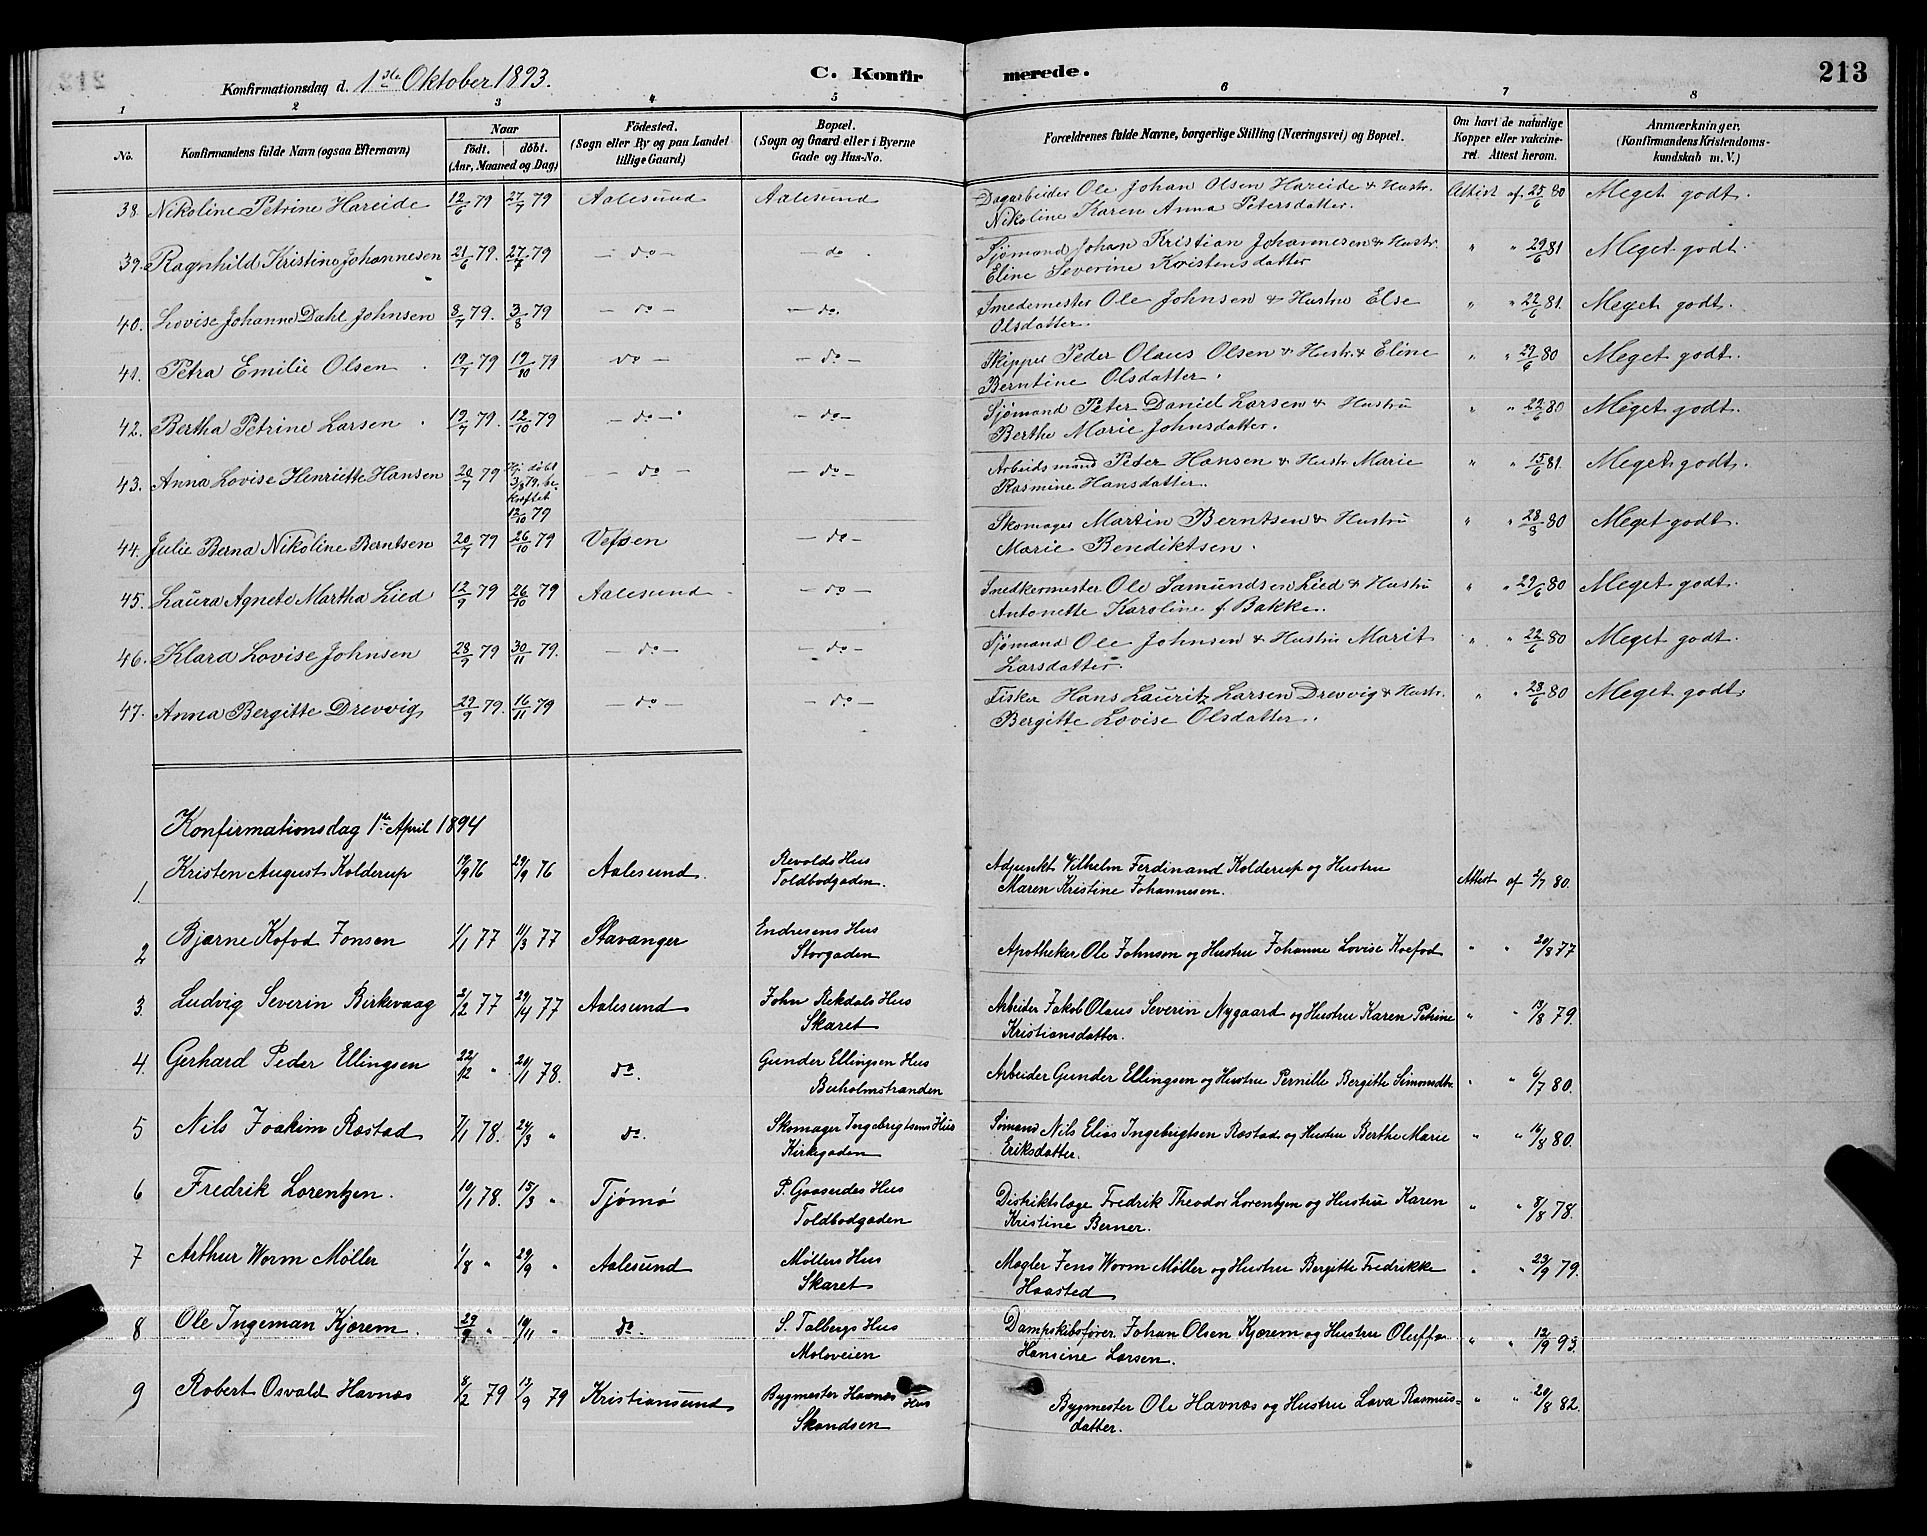 213
Konfirmationsdag d. 1ste Oktober 1893.
C. Konfirmerede.
1 2 3 4 5 6 7 8
No.
Konfirmandens fulde Navn (ogsaa Efternavn)
Naar
födt. döbt.
(Aar, Maaned og Dag)
Födested.
(Sogn eller By og paa Landet
tillige Gaard)
Bopæl.
(Sogn og Gaard eller i Byerne
Gade og Hus-No.
Forældrenes fulde Navne, borgerlige Stilling (Næringsvei) og Bopæl.
Om havt de naturlige
Kopper eller vakcine-
ret. Attest herom.
Anmærkninger.
(Konfirmandens Kristendoms-
kundskab m. V.)
38. Nikoline Petrine Hareide 12/6 79 27/7 79 Aalesund Aalesund Dagarbeider Ole Johan Olsen Hareide & Hustr. Attest af 25/6 80 Meget godt.
Nikoline Karen Anna Petersdatter.
39. Ragnhild Kristine Johannesen 21/6 79. 27/7 79 - do - - do - Sjömand Johan Kristian Johannesen & Hustr. " " 29/6 81 Meget godt.
Eline Severine Kristensdatter
40. Lovise Johanne Dahl Johnsen 8/7 79. 3/8 79 - do - - do. Smedemester Ole Johnsen & Hustru Else " " 22/6 81. Meget godt.
Olsdatter.
41. Petra Emilie Olsen 19/7 79 19/10 79 do - - do - Skipper Peder Olaus Olsen & Hustr. Eline " " 29/6 80 Meget godt.
Berntine Olsdatter.
42. Bertha Petrine Larsen 19/7 79. 12/10 79 - do - - do - Sjömand Peter Daniel Larsen & Hustru " " 22/6 80 Meget godt.
Berthe Marie Johnsdatter.
43. Anna Lovise Henriette Hansen 20/7 79 Hj. döbt
3/8 79, be-
kræftet
12/10 79 - do - - do - Arbeidsmand Peter Hansen & Hustr. Marie " " 15/6 81. Meget godt.
Rasmine Hansdatter.
44. Julie Berna Nikoline Berntsen 20/7 79 26/10 79 Vefsen - do - Skomager Martin Berntsen & Hustru " " 28/8 80 Meget godt.
Marie Bendiktsen.
45. Laura Agnete Martha Lied 12/9 79 26/10 79 Aalesund - do - Snedkermester Ole Samundsen Lied & Hustru " " 29/6 80 Meget godt.
Antonette Karoline f. Bakke.
46. Klara Lovise Johnsen 28/9 79 30/11 79. - do - - do - Sjömand Ole Johnsen & Hustru Marit " " 22/6 80 Meget godt.
Larsdatter.
47. Anna Bergitte Drevvig 29/9 79. 16/11 79 - do - - do - Fisker Hans Lauritz Larsen Drevvig & Hustr. " " 28/6 80 Meget godt.
Bergitte Lovise Olsdatter.
Konfirmationsdag 1ste April 1894
1 Kristen August Kolderup 19/9 76 29/9 76 Aalesund. Revolds Hus
Toldbodgaden. Adjunkt Vilhelm Ferdinand Kolderup og Hustru
Maren Kristine Johannesen. Attest af 2/7 80.
2 Bjarne Kofod Jonsen 1/1 77 11/3 77 Stavanger Endresens Hus
Storgaden Apotheker Ole Johnson og Hustru Johanne Lovise Koefod " " 20/8 77
3. Ludvig Severin Birkevaag 2/2 77 29/4 77 Aalesund John Rekdals Hus
Skaret Arbeider Jakob Olaus Severin Nygaard og Hustru Karen Petrine
Kristiansdatter. " " 19/8 79.
4. Gerhard Peder Ellingsen 22/12 " 20/1 78. do. Gunder Ellingsen Hus
Buholmstranden Arbeider Gunder Ellingsen og Hustru Pernille Bergitte Simonsdtr. " " 6/7 80.
5 Nils Joakim Rostad 7/1 78. 24/3 " do. Skomager Ingebrigtsens Hus
Kirkegaden Sömand Nils Elias Ingebrigtsen Rostad og Hustru Berthe Marie
Eriksdatter. " " 16/8 80.
6 Fredrik Lorentzen. 19/1 78. 15/3 " Tjömö P. Gaaseides Hus
Toldbodgaden Distriktslæge Fredrik Theodor Lorentzen og Hustru Karen
Kristine Berner. " " 8/8 78.
7 Arthur Worm Möller 1/8 " 29/9 " Aalesund Möllers Hus
Skaret Mægler Jens Worm Möller og Hustru Bergitte Fredrikke
Haasted " " 23/9 79.
8 Ole Ingeman Kjærem. 29/9 " 10/11 " do. S. Talbergs Hus
Moloveien Dampskibsförer Johan Olsen Kjærem og Hustru Oluffa
Hansine Larsen. " " 12/9 93.
9 Robert Osvald Havnæs 8/2 79 13/9 79 Kristiansund Bygmester Havnæs Hus
Skandsen Bygmester Ole Havnæs og Hustru Lava Rasmus-
datter. " " 20/8 82.